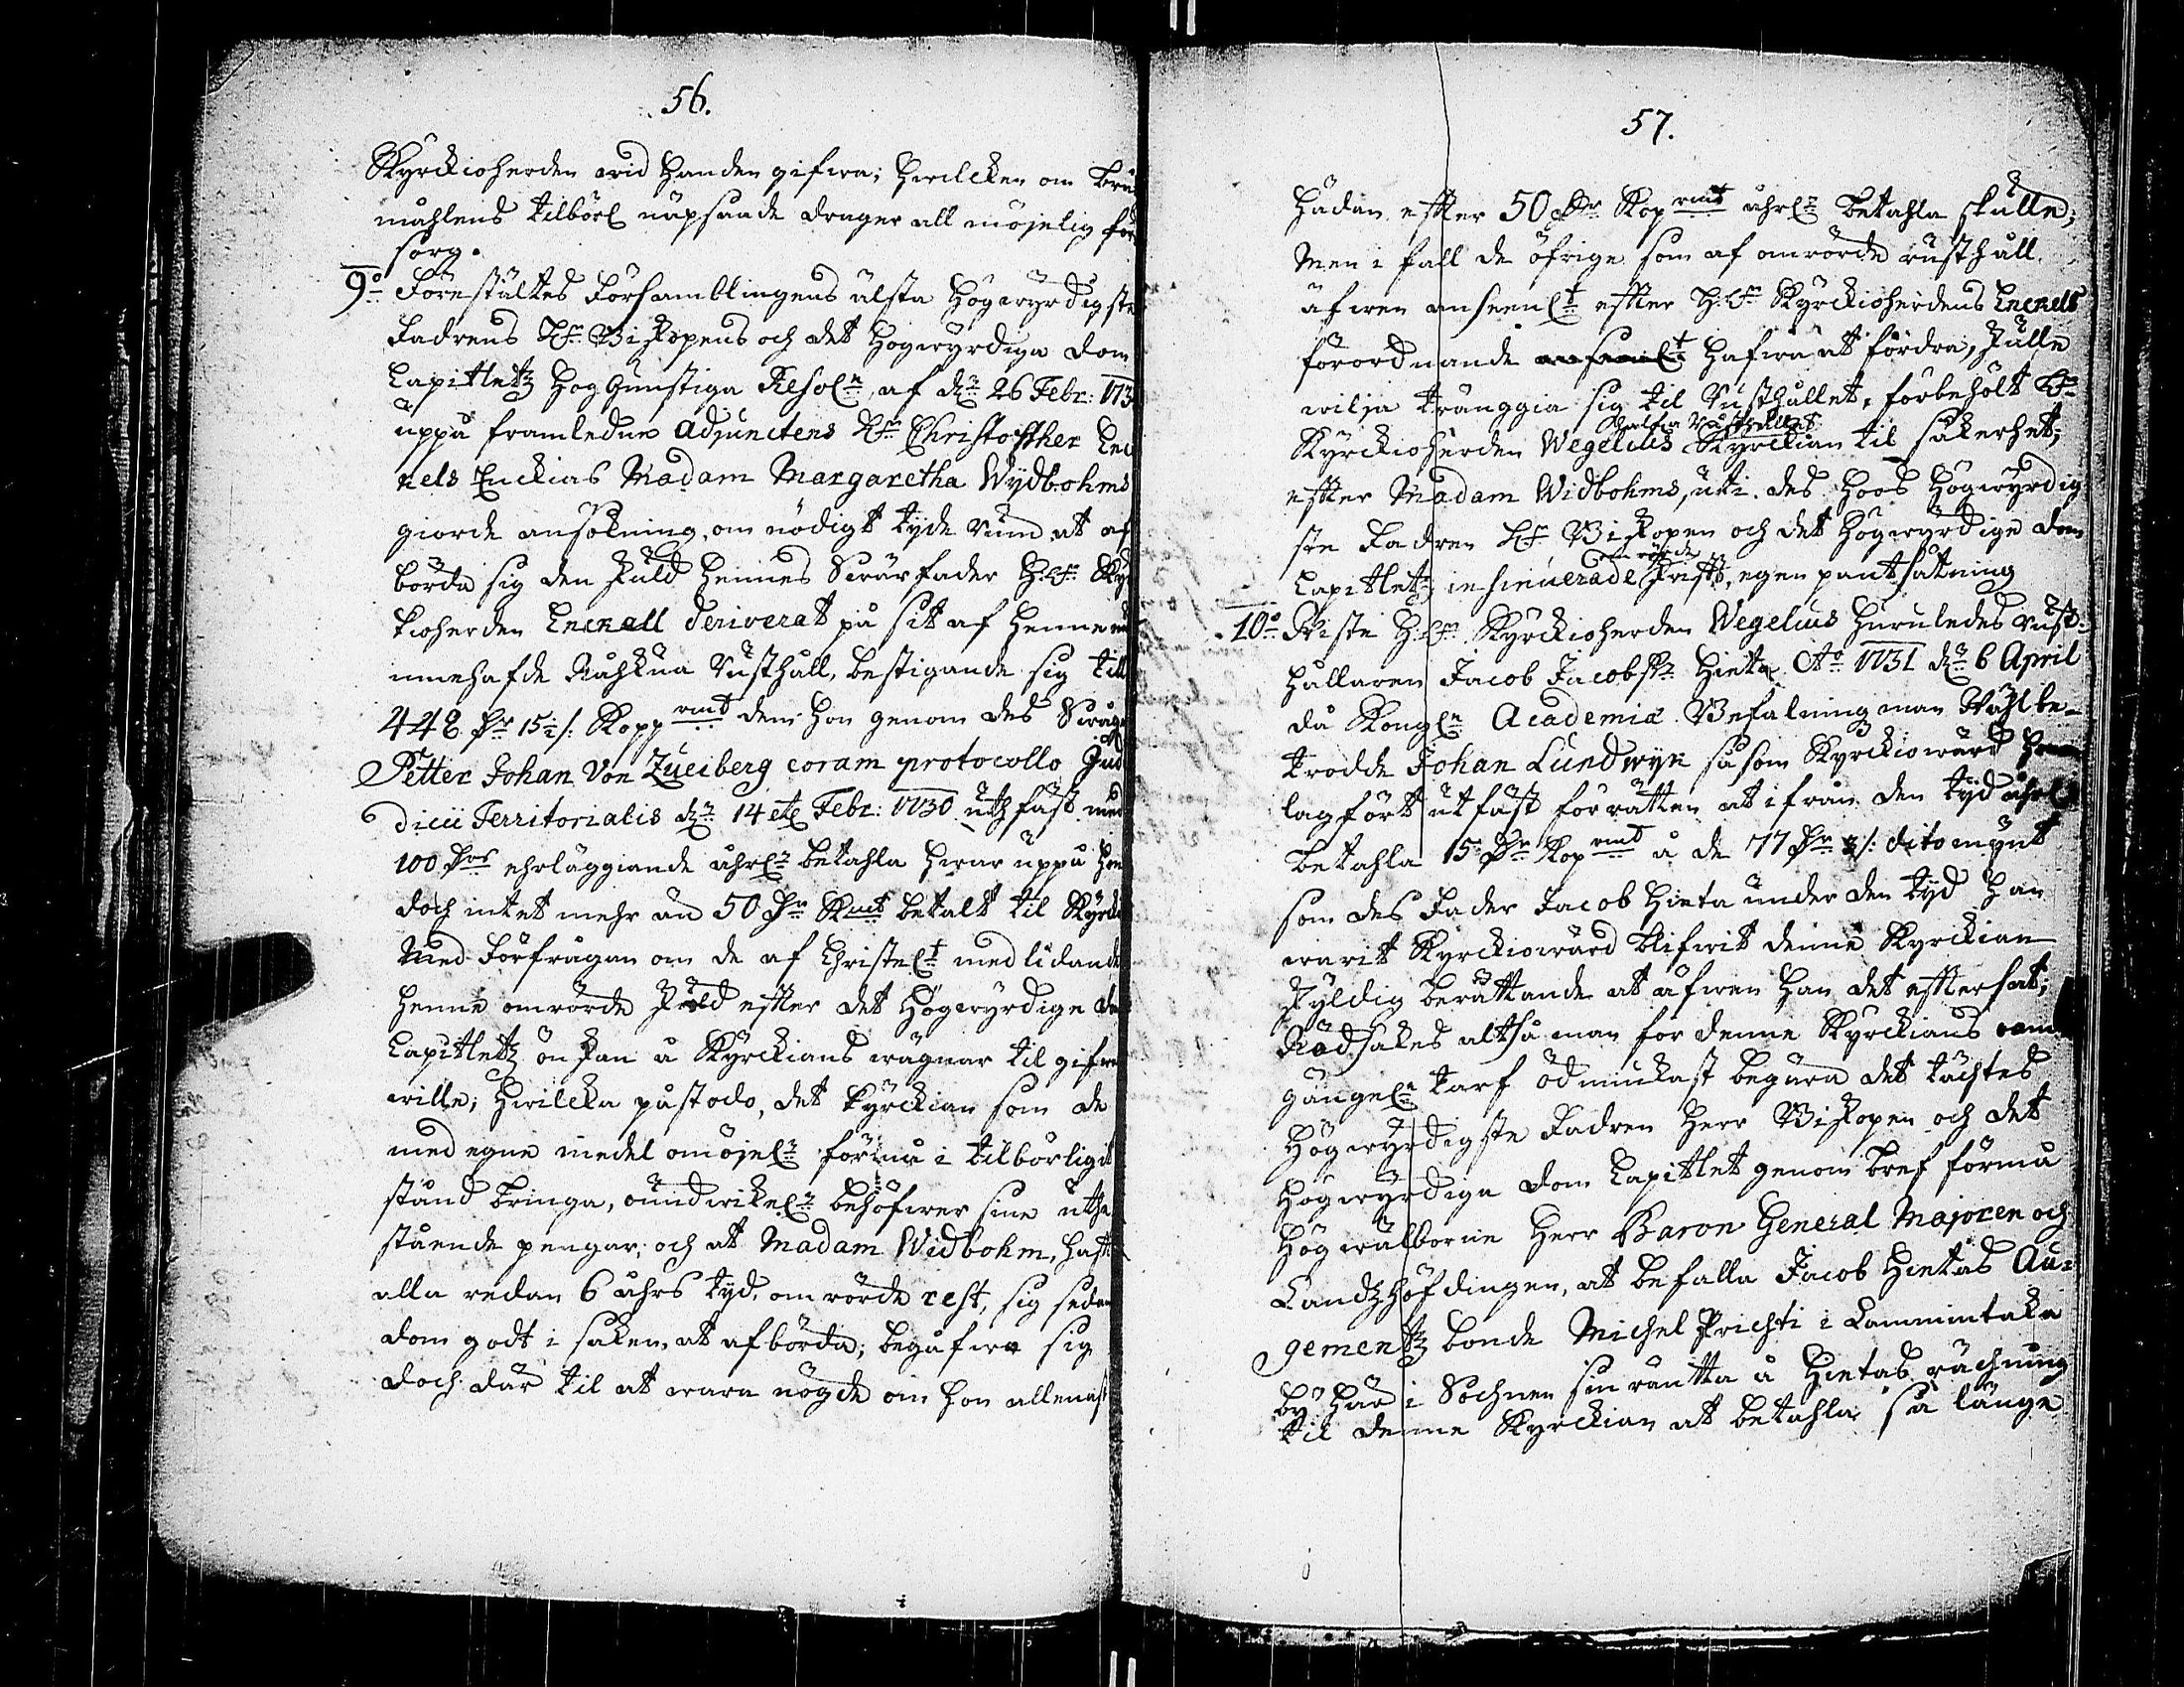 56.
Kyrckioherden wid handen gifwa; hwilcken om
mahlens tilbörl näpsande drager all möjelig för
sorg.
9o Förestältes Församblingens älsta Högwyrdigste
Fadrens Hr Biskopens och det Högwyrdiga Dom
Capitletz Hög Gunstiga Resoln af dn 26 Febr: 173
uppå framledne Adjunctens Hr Christopher Enc
nels Enckias Madam Margaretha Wydbohms
giorde ansökning, om nödigt tyde rum at af
börda sig den skuld hennes Swärfader H:Hr Kyr
kioherden Encnell deriverat på sit af henne nu
innehafde Nahkua Rusthåll, bestigande sig till
448 dr 15½/: Kopp mt dem hon genom des Swåger
Petter Johan Von Zueiberg coram protocollo Ju
dicii Territorialis dn 14 Febr: 1730 utfäst med
100 drs ehrläggiande åhrln betahla hwar uppå hon
doch intet mehr än 50 dr Kmt betalt til Kyrck
Med Förfrågan om de af Christelt medlidande
henne omrörde skuld efter det Högwyrdige Dom
Capitletz önskan å Kyrckians wägnar til gifwa
wille; hwilcka påstodo, det kyrckian som de
med egne medel omöjeln förmå i tilbörligit
stånd bringa, oundwikeln behöfwer sine uthe
stående pengar; och at Madam Widbohm, haft
alla redan 6 åhrs tyd, omrörde rest, sig sedan
dom godt i saken at afbörda; begåfwo sig
doch där til at wara nögde om hon allenast
57.
hädan efter 50 dr Kop mt åhrln betahla skulle;
Men i fall de öfrige som af omrörde rusthåll
äfwen anseent efter H:Hr Kyrckioherdens Encnels
förordnande hafwa at fordra, skulle
wilja tränggia sig til Rusthållet, förbehölt Hr
Rusthållet
Kyrckioherden Wegelius Kyrckian til säkerhet;
efter Madam Widbohms, uti des hoos Högwyrdig
ste Fadren Hr Biskopen och det Högwyrdige Dom
omrörde
Capitletz insinuerade skrift, egen pantsätning
10o Wiste H:Hr Kyrckioherden Wegelius huruledes Rust-
hållaren Jacob Jacobss Hieta Ao 1731 dn 6 April
då Kongln Academiæ Befalningman Wählbe-
trodde Johan Lundwyn såsom Kyrckiowärd
lagfört utfäst för rätten at ifrån den tyd åhrl
betahla 15 dr Kop mt å de 77 dr 3/: dito mynt
som des Fader Jacob Hieta under den tyd han
warit Kyrckiowärd blifwit denne Kyrckian
skyldig berättande at äfwen han det eftersat;
Nödsakes altså man för denne Kyrckians oum
gängeln tarf ödmiukast begära det täcktes
Högwyrdigste Fadren Herr Biskopen och det
Högwyrdiga Dom Capitlet genom bref förmå
Högwälborne Herr Baron General Majoren och
Landzhöfdingen, at befalla Jacob Hietas Au-
gementz bonde Michel Prichti i Lammintaka
by här i Sochnen sin räntta å Hietas räckning
til denne Kyrckian at betahla så länge